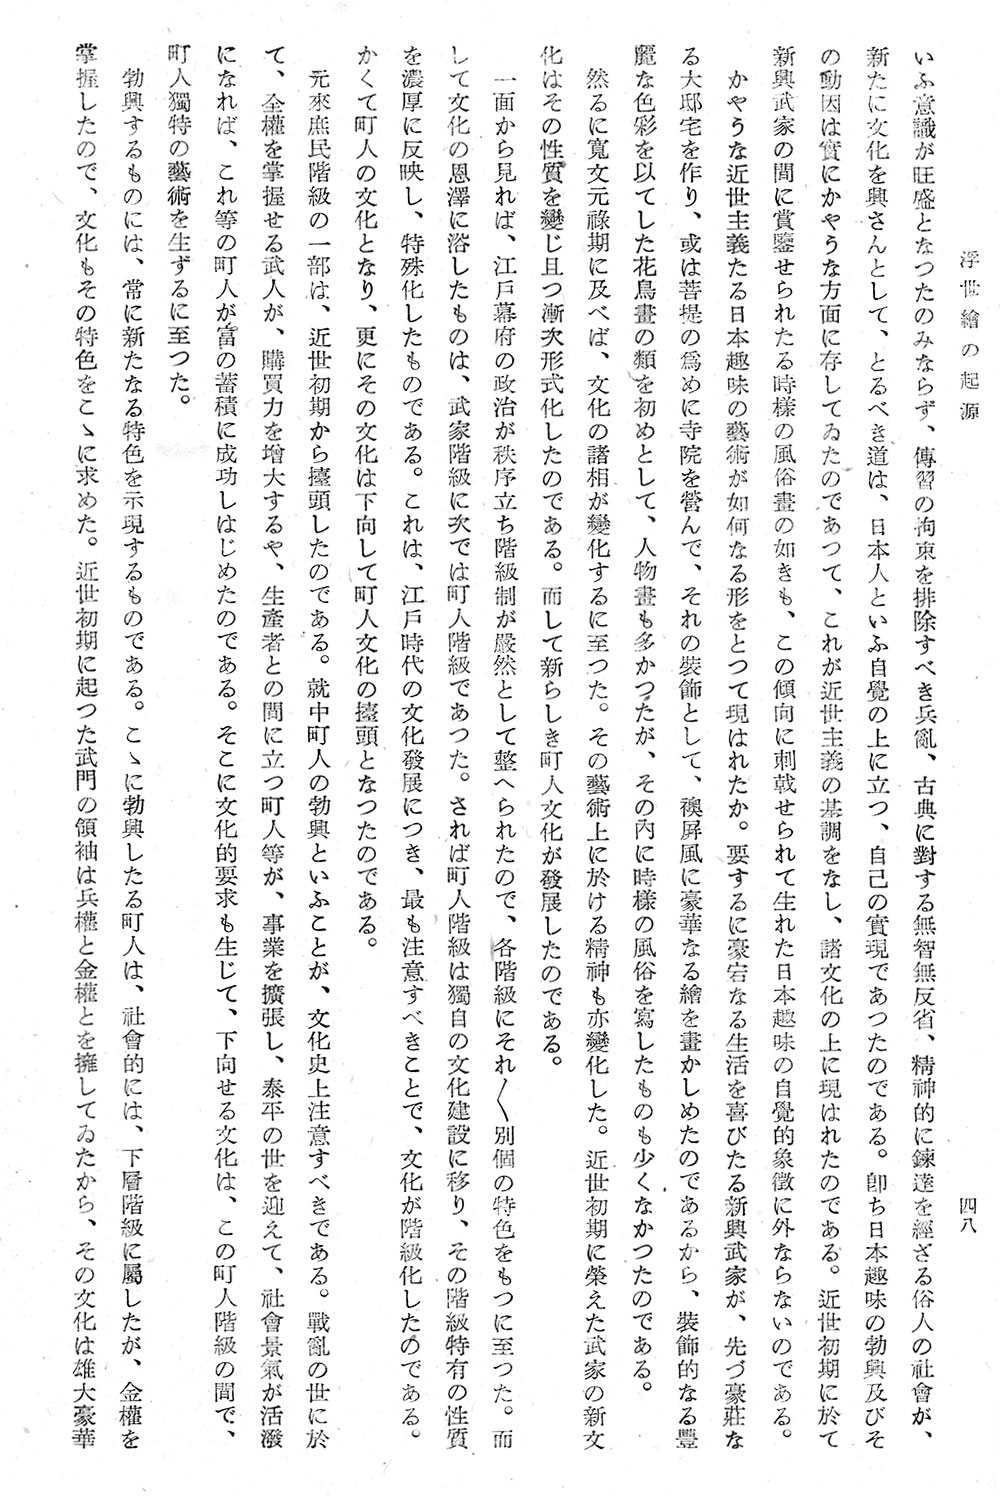 浮世繪の起源
四八
いふ意識が旺盛となつたのみならず、傳習の拘束を排除すべき兵亂、古典に對する無智無反省、精神的に鍊達を經ざる俗人の社會が、
新たに文化を興さんとして、とるべき道は、日本人といふ自覺の上に立つ、自己の實現であつたのである。卽ち日本趣味の勃興及びそ
の動因は實にかやうな方面に存してゐたのであつて、これが近世主義の基調をなし、諸文化の上に現はれたのである。近世初期に於て
新興武家の間に賞鑒せられたる時樣の風俗畫の如きも、この傾向に刺戟せられて生れた日本趣味の自覺的象徵に外ならないのである。
かやうな近世主義たる日本趣味の藝術が如何なる形をとつて現はれたか。要するに豪宕なる生活を喜びたる新興武家が、先づ豪莊な
る大邸宅を作り、或は菩提の爲めに寺院を營んで、それの裝飾として、襖屏風に豪華なる繪を畫かしめたのであるから、裝飾的なる豐
麗な色彩を以てした花鳥畫の類を初めとして、人物畫も多かつたが、その內に時樣の風俗を寫したものも少くなかつたのである。
然るに寬文元祿期に及べば、文化の諸相が變化するに至つた。その藝術上に於ける精神も亦變化した。近世初期に榮えた武家の新文
化はその性質を變じ且つ漸次形式化したのである。而して新らしき町人文化が發展したのである。
一面から見れば、江戶幕府の政治が秩序立ち階級制が嚴然として整へられたので、各階級にそれ〱別個の特色をもつに至つた。而
して文化の恩澤に浴したものは、武家階級に次では町人階級であつた。されば町人階級は獨自の文化建設に移り、その階級特有の性質
を濃厚に反映し、特殊化したものである。これは、江戶時代の文化發展につき、最も注意すべきことで、文化が階級化したのである。
かくて町人の文化となり、更にその文化は下向して町人文化の擡頭となつたのである。
元來庶民階級の一部は、近世初期から擡頭したのである。就中町人の勃興といふことが、文化史上注意すべきである。戰亂の世に於
て、全權を掌握せる武人が、購買力を增大するや、生產者との間に立つ町人等が、事業を擴張し、泰平の世を迎えて、社會景氣が活潑
になれば、これ等の町人が富の蓄積に成功しはじめたのである。そこに文化的要求も生じて、下向せる文化は、この町人階級の間で、
町人獨特の藝術を生ずるに至つた。
勃興するものには、常に新たなる特色を示現するものである。こゝに勃興したる町人は、社會的には、下層階級に屬したが、金權を
掌握したので、文化もその特色をこゝに求めた。近世初期に起つた武門の領袖は兵權と金權とを擁してゐたから、その文化は雄大豪華